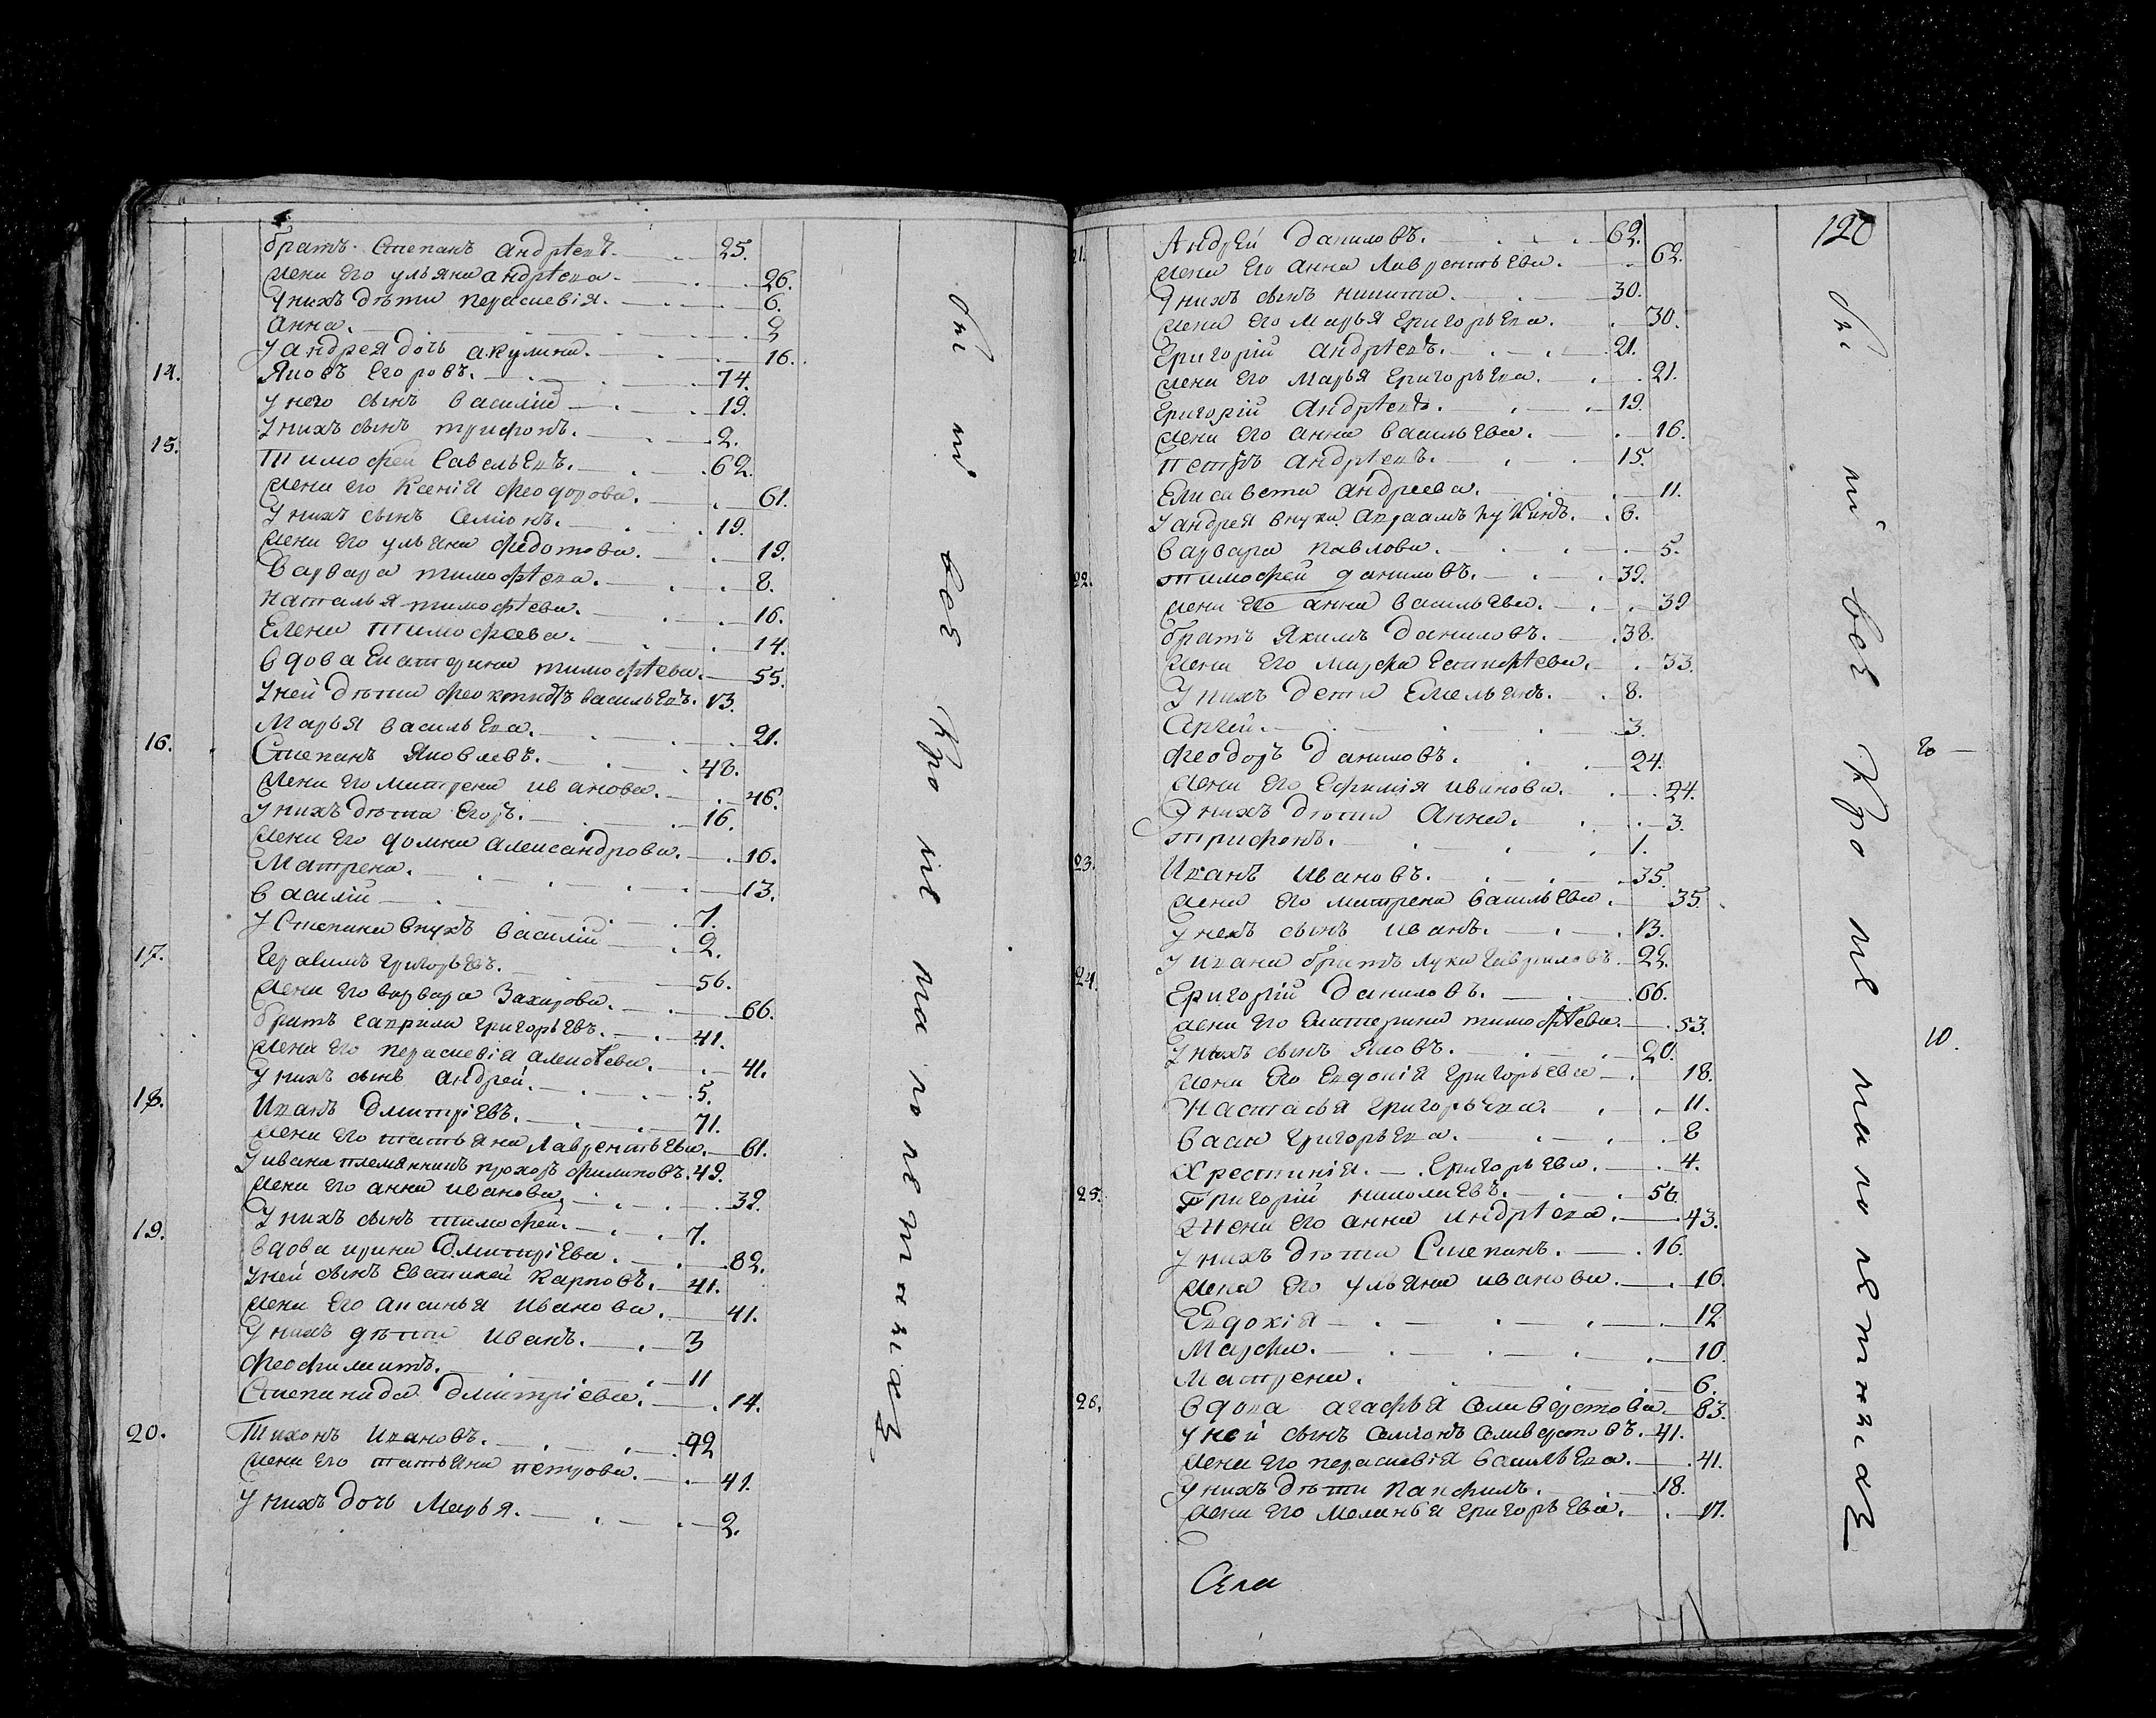 братъ Степанъ андрѣевъ. 25.
жена его ульяна андрѣева. 26.
у нихъ дѣти параскевія. 6.
Анна. 2
у андрея дочь акулина. 16.
14. Яковъ Егоровъ. 74.
у него сынъ василій 19.
У нихъ сынъ трифонъ. 2.
15. Тимофей Савельевъ. 62.
жена его Ксенія феодорова. 61.
у нихъ сынъ Семіонъ. 19.
жена его ульяна федотова. 19.
варвара тимофѣева. 8.
наталья тимофѣева. 16.
Елена тимофеева. 14.
вдова Екатерина тимофѣева. 55.
У ней дѣти васильевъ. 13.
Марья васильева. 21.
16. Степанъ Яковлевъ. 48.
жена его матрена иванова. 46.
у нихъ дѣти Егоръ. 16.
жена его домна александрова. 16.
Матрена. 13.
василій 7.
у Степана внукъ василій 2.
17. Герасимъ григорьевъ. 56.
жена его варвара Захарова. 66.
братъ гаврила григорьевъ. 41.
жена его параскевія алексѣева. 41.
у нихъ сынъ андрей. 5.
18. Иванъ дмитріевъ. 71.
жена его татьяна Лаврентьева. 61.
у ивана племянникъ прохоръ филиповъ. 49.
жена его анна иванова. 32.
У нихъ сынъ тимофей. 7.
19. вдова ирина дмитріева. 82.
у ней сынъ Евстикей карповъ. 41.
жена его аксинья иванова. 41.
у нихъ дѣти иванъ. 3
феофилактъ. 11
Степанида дмитріева. 14.
20. Тихонъ ивановъ. 42
жена его татьяна петрова. 41.
у нихъ дочь Марья. 2.
быт все кро ме
120
21. Андрей даниловъ. 62.
жена его анна Лаврентьева. 62.
у нихъ сынъ никита. 30.
жена его марья григорьева. 30.
григорій андрѣевъ. 21.
жена его Марья григорьева. 21.
григорій андрѣевъ. 19.
жена его анна васильева. 16.
петръ андрѣевъ. 15.
Елисавета андреева. 11.
у андрея внуки авраамъ 6.
варвара павлова. 5.
22. тимофей даниловъ. 39.
жена его анна васильева. 39
братъ якимъ даниловъ. 38.
жена его марфа Естифѣева. 33.
у нихъ дети Емельянъ. 8.
Сергей. 3.
феодоръ даниловъ. 24.
жена его Ефимія иванова. 24.
У нихъ дѣти Анна. 3.
трифонъ. 1.
23. Иванъ ивановъ. 35.
жена его матрена васильева. 35.
у нихъ сынъ иванъ. 13.
у ивана братъ лука гавриловъ. 22.
24. григорій даниловъ. 66.
жена его Екатерина тимофѣева. 53.
у нихъ сынъ яковъ. 20.
жена его Евдокія григорьева 18.
Настасья григорьева. 11.
григорьева. 8
Хрестинія. григорьева. 4.
25. Григорій николаевъ. 56
жена его анна андрѣева. 43.
у нихъ дѣти Степанъ. 16.
жена его ульяна иванова. 16.
Евдокія 12
Марфа. 10.
Матрена. 6.
26. вдова агафья Селиверстова. 83.
у ней сынъ Семіонъ Селиверстовъ. 41.
жена его параскевія васильева. 41.
у нихъ дѣти панфилъ. 18.
жена его Меланья григорьева. 17.
Села
быт все кро ме
го
10.